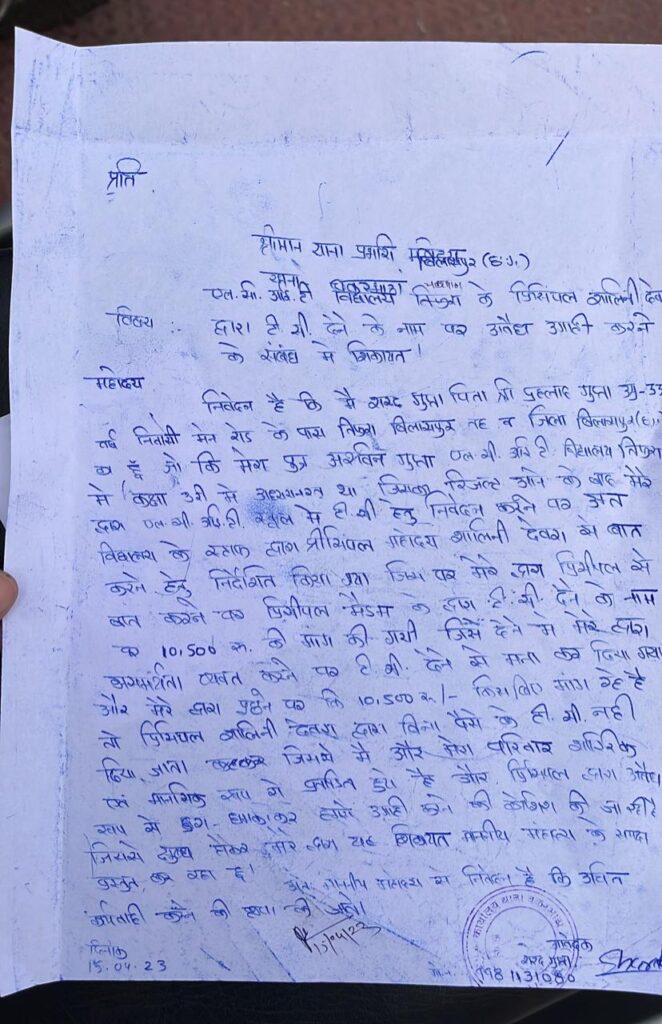 प्रति
श्रीमान थाना प्रभारी महोदय
थाना बिलासपुर (छ.ग.)
विषय :- एल.सी.आई.टी विद्यालय तिफरा के प्रिंसिपल शालिनी देवरा
द्वारा टी.सी. देने के नाम पर अवैध उगाही करने
के संबंध में शिकायत।
महोदय
निवेदन है कि मै शरद गुप्ता पिता श्री प्रहलाद गुप्ता उम्र-
वर्ष निवासी मेन रोड के पास तिफरा बिलासपुर तह व जिला बिलासपुर (छ.ग.)
का हूँ जो कि मेरा पुत्र अरविन गुप्ता एल.सी.आई.टी. विद्यालय तिफरा
मे कक्षा 3री मे अध्ययनरत था जिसका रिजल्ट आने के बाद मेरे
द्वारा एल.सी.आई.टी स्कूल मे टी.सी हेतु निवेदन करने पर
विद्यालय के स्टाफ द्वारा प्रींसिपल महोदया शालिनी देवरा से बात
करने हेतु निर्देशित किया गया जिस पर मेरे द्वारा प्रिंसीपल से
बात करने पर प्रिंसीपल मैडम के द्वारा टी.सी. देने के नाम
पर 10,500 रु. की मांग की गयी जिसे देने मे मेरे द्वारा
असमर्थता व्यक्त करने पर टी.सी. देने से मना कर दिया गया
और मेरे द्वारा पुछने पर कि 10,500 रु/- किस लिए मांग रहे है
तो प्रिंसिपल शालिनी देवरा द्वारा बिना पैसे के टी.सी. नही
दिया जाता कहकर जिससे मै और मेरा परिवार शारिरिक
एवं मानसिक रूप से प्रताडित हुए है और प्रिंसिपल द्वारा अवैध
रूप से डरा-धमकाकर हमसे उगाही करने की कोशिश की जा रही है
जिससे दुखी होकर मेरे द्वारा यह शिकायत माननीय महोदय के समक्ष
प्रस्तुत कर रहा हूँ।
अतः माननीय महोदय से निवेदन है कि उचित
कार्यवाही करने की कृपा की जाये।
दिनांक
15.04.23
15/04/23
आवेदक
शरद गुप्ता